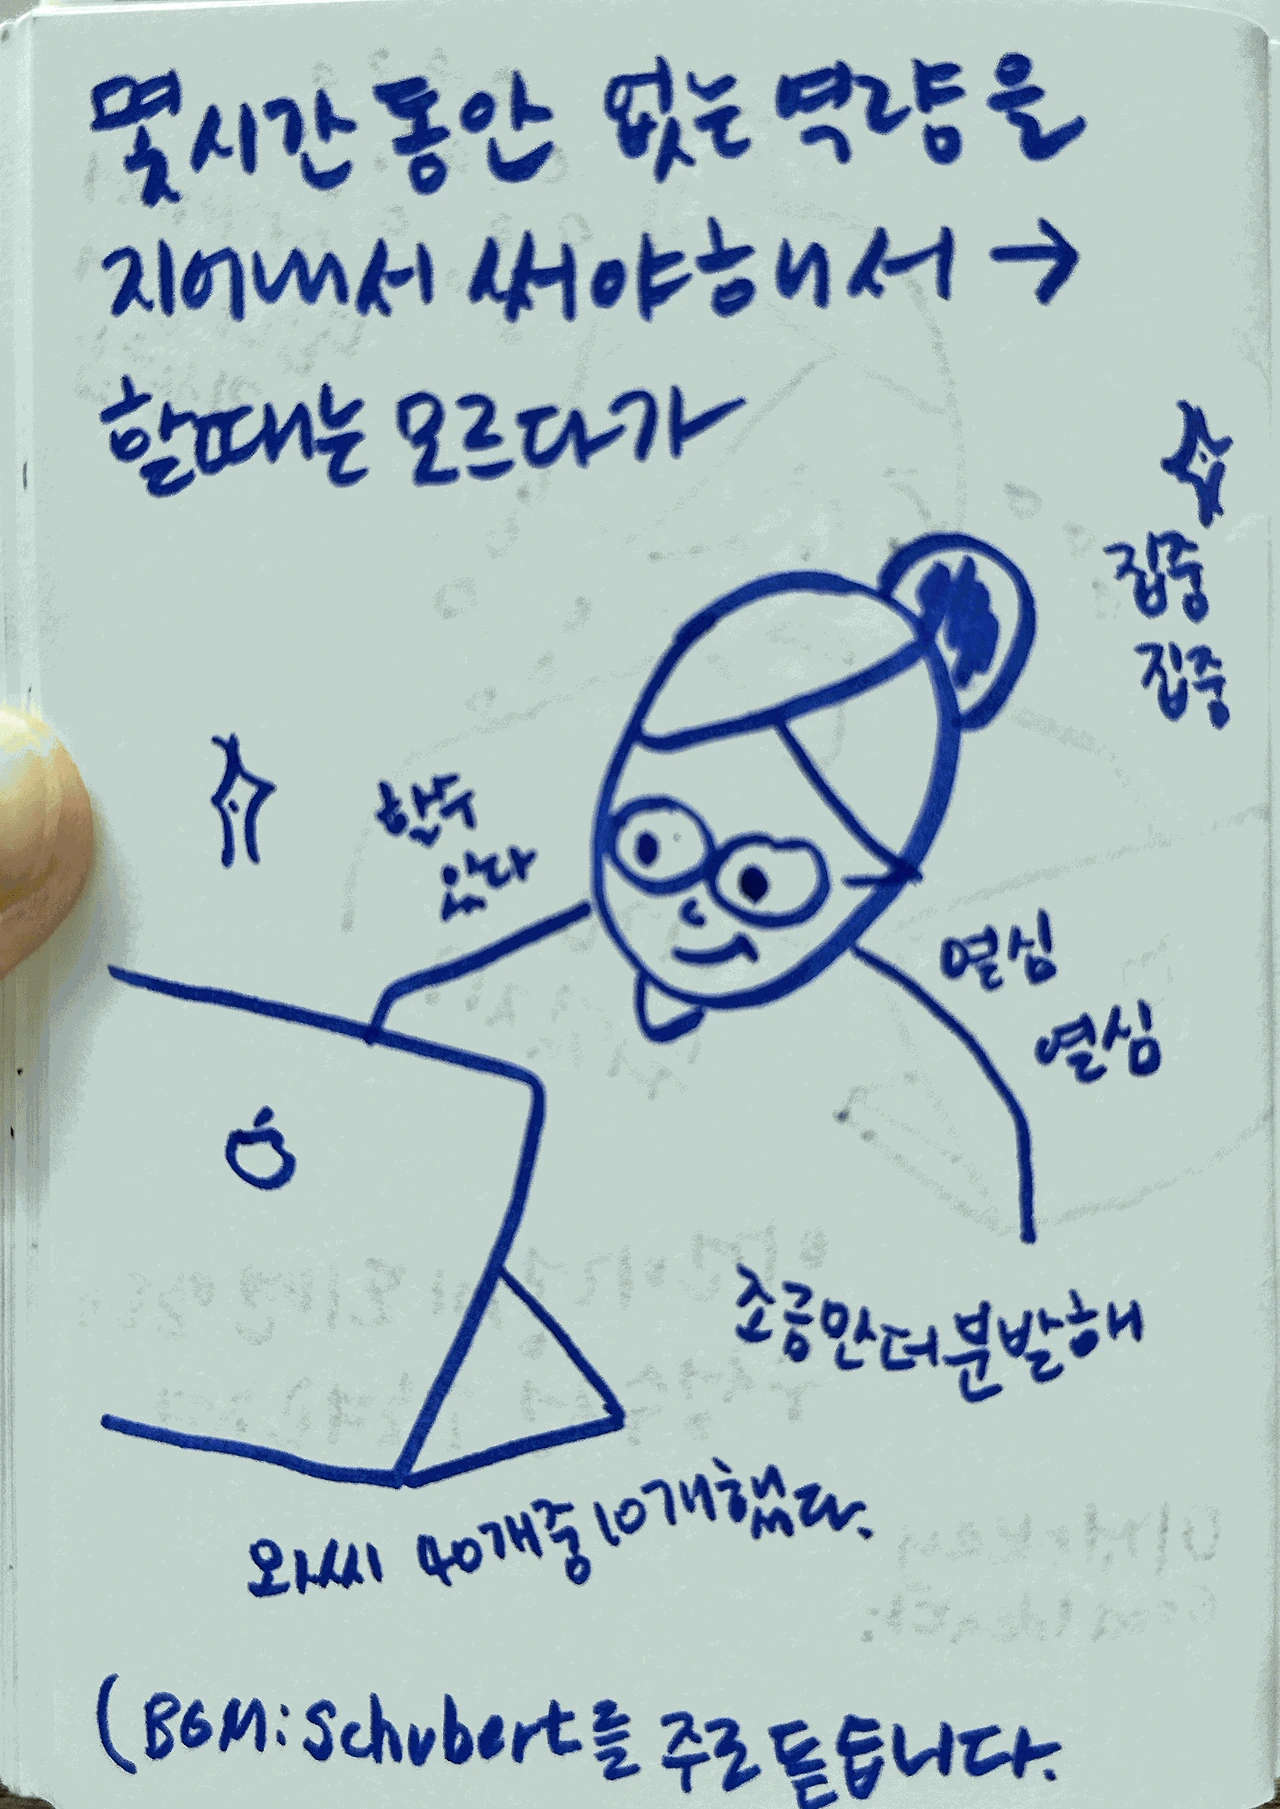 몇시간 동안 없는 역량을
지어내서 써야해서 →
할때는 모르다가
집중
집중
할수
있다
열심
열심
조금만 더 분발해
와씨 40개중 10개했다.
(BGM: Schubert를 주로 듣습니다.